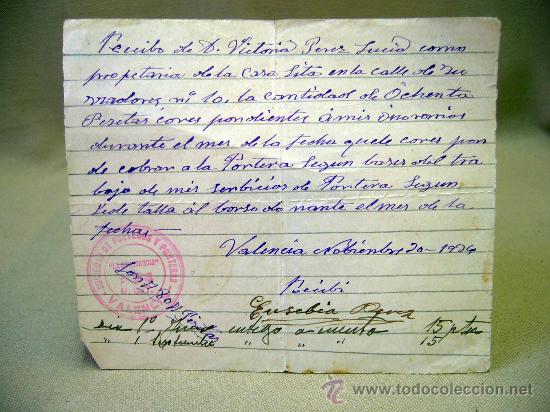 Recibo de D. Victoria Perez Lucia como
propetaria de la Casa Sita en la calle de
radores, nº 10. la cantidad de Ochenta
Pesetas cores pondientes á mis onorarios
durante el mes de la fecha que le cores pon
de cobrar a la Portera Segun bases del tra
bajo de mis serbicios de Portera Segun
talla al dorso durante el mes de la
fecha
Valencia Nobienbre 20-1934
Recibi
Eusebia
1º 15 ptas
" " " " 15
PORTEROS Y PORTERAS
VALENCIA
todocoleccion
www.todocoleccion.net